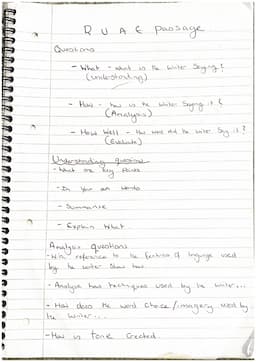 R U A E passage
Questions
- What - what is the writer saying?
(Understanding)
- How - how is the writer saying it?
(Analysis)
- How Well - How well did the writer say it?
(Evaluate)
Understanding questions
- What are key points
- In your own words
- Summarise
- Explain what
Analysis questions
- With reference to the features of language used
by the writer show how
- Analyse how techniques used by the writer...
- How does the word choice/imagery used by
the writer...
- How is tone created.